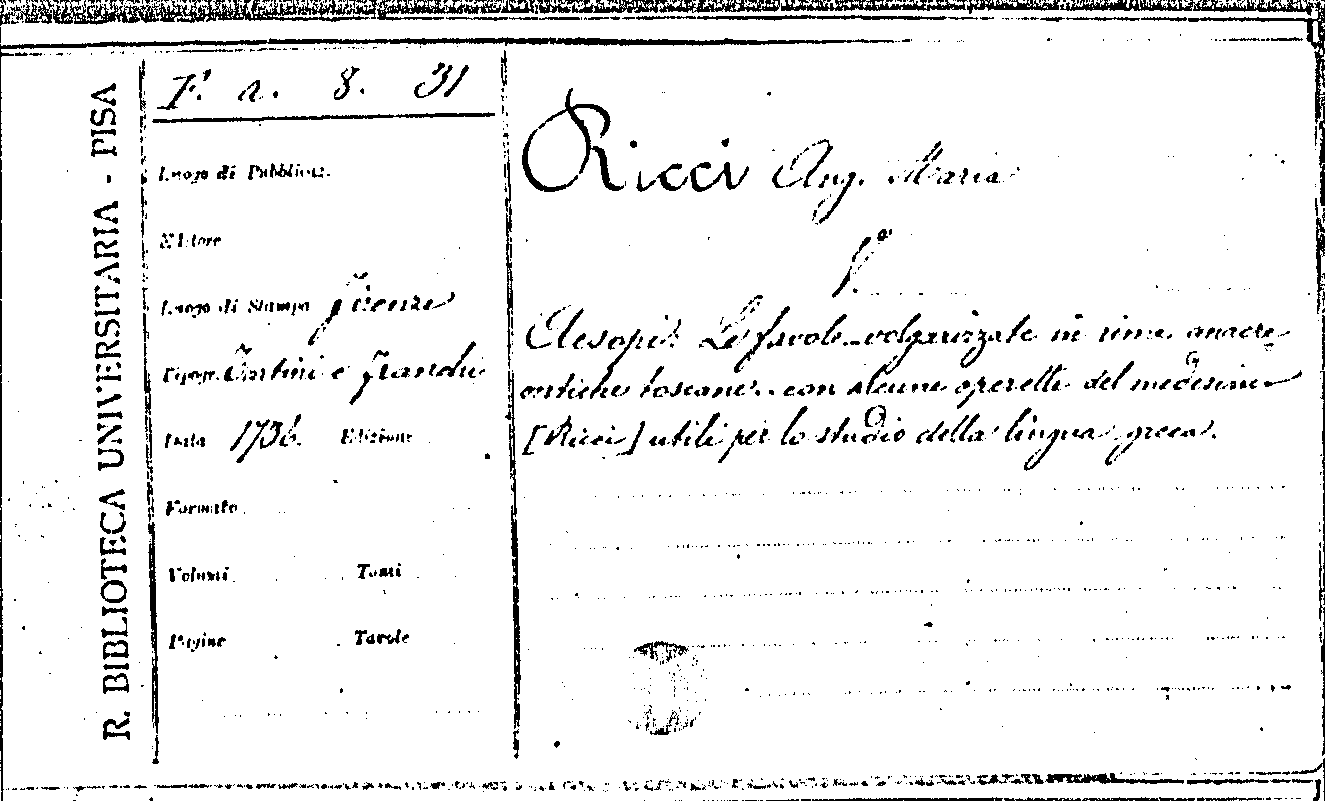 R. BIBLIOTECA UNIVERSITARIA - PISA
F. a. 8. 31
Luogo di Pubblicaz.
Editore
Luogo di Stampa Firenze
Tipogr. Tartini e Franchi
Data 1736. Edizione
Formato
Volumi Tomi
Pagine Tavole
Ricci Ang. Maria
Va
Aesopi: Le favole volgarizzate in rime anacre
ontiche toscane.. con alcune operette del medesimo
[Ricci] utili per lo studio della lingua greca.